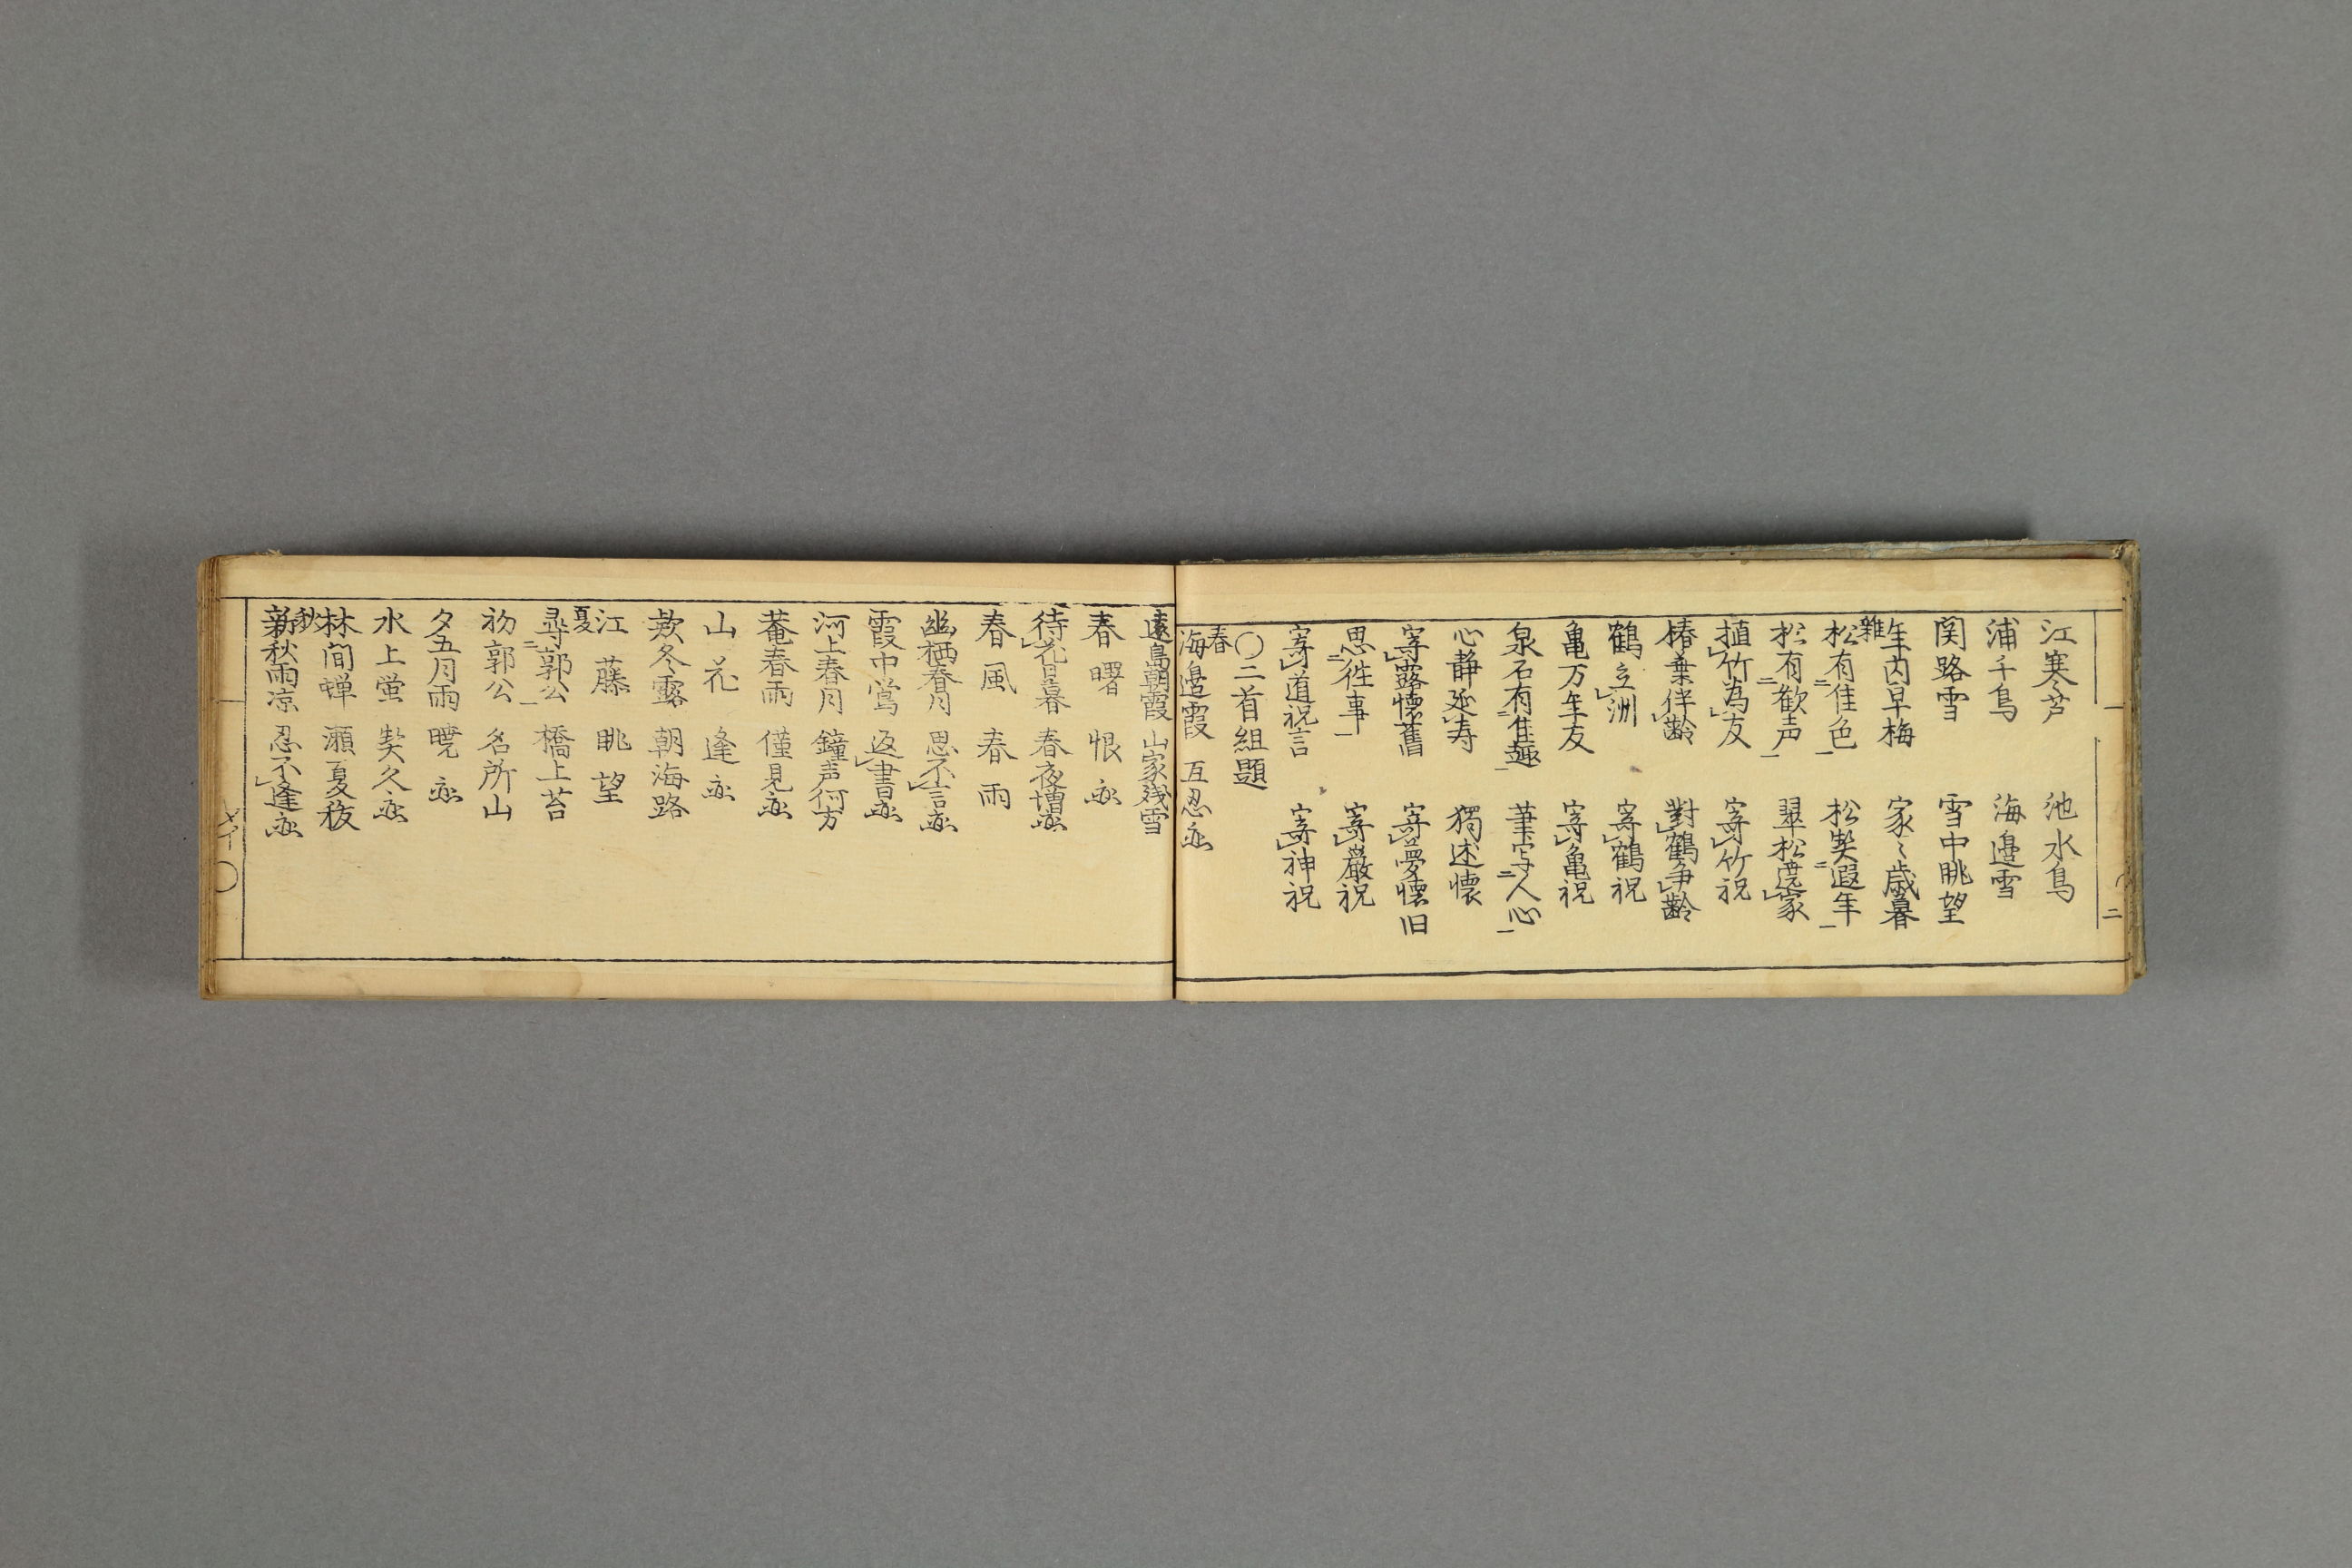 江寒芦　池水鳥
浦千鳥　海邉雪
関路雪　雪中眺望
年内早梅　家々歳暮
雑
松有佳色　松契遐年
松有歓声　翠松遶家
植竹為友　寄竹祝
椿葉伴齢　對鶴争齢
鶴立洲　寄鶴祝
亀万年友　寄亀祝
泉石有佳趣　筆写人心
心静延寿　獨述懐
寄露懐舊　寄夢懐旧
思徃事　寄巌祝
寄道祝言　寄神祝
〇二首組題
春
海邉霞　互忍恋
遠島朝霞　山家残雪
春曙　恨恋
待花日暮　春夜増恋
春風　春雨
幽栖春月　思不言恋
霞中鴬　返書恋
河上春月　鐘声何方
菴春雨　僅見恋
山花　逢恋
欵冬露　朝海路
江藤　眺望
夏
尋郭公　橋上苔
初郭公　名所山
夕五月雨　暁恋
水上蛍　契久恋
林間蝉　瀬夏秡
秋
新秋雨凉　忍不逢恋